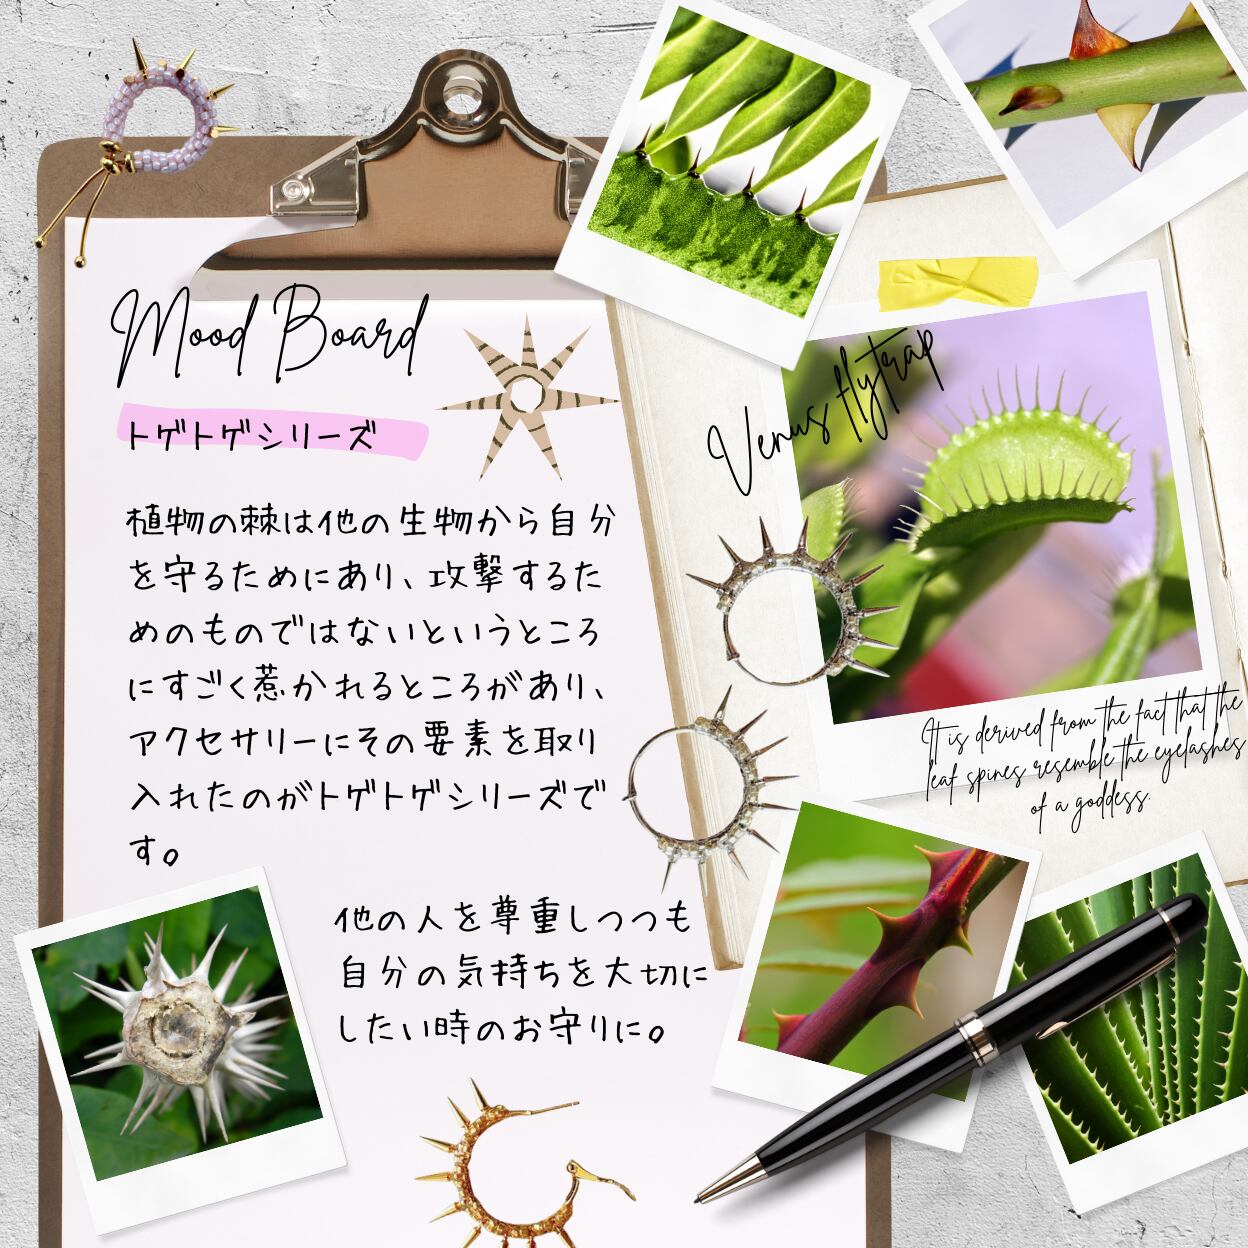 Mood Board
トゲトゲシリーズ
植物の棘は他の生物から自分
を守るためにあり、攻撃するた
めのものではないというところ
にすごく惹かれるところがあり、
アクセサリーにその要素を取り
入れたのがトゲトゲシリーズで
す。
他の人を尊重しつつも
自分の気持ちを大切に
したい時のお守りに。
Venus flytrap
It is derived from the fact that the
leaf spines resemble the eyelashes
of a goddess.